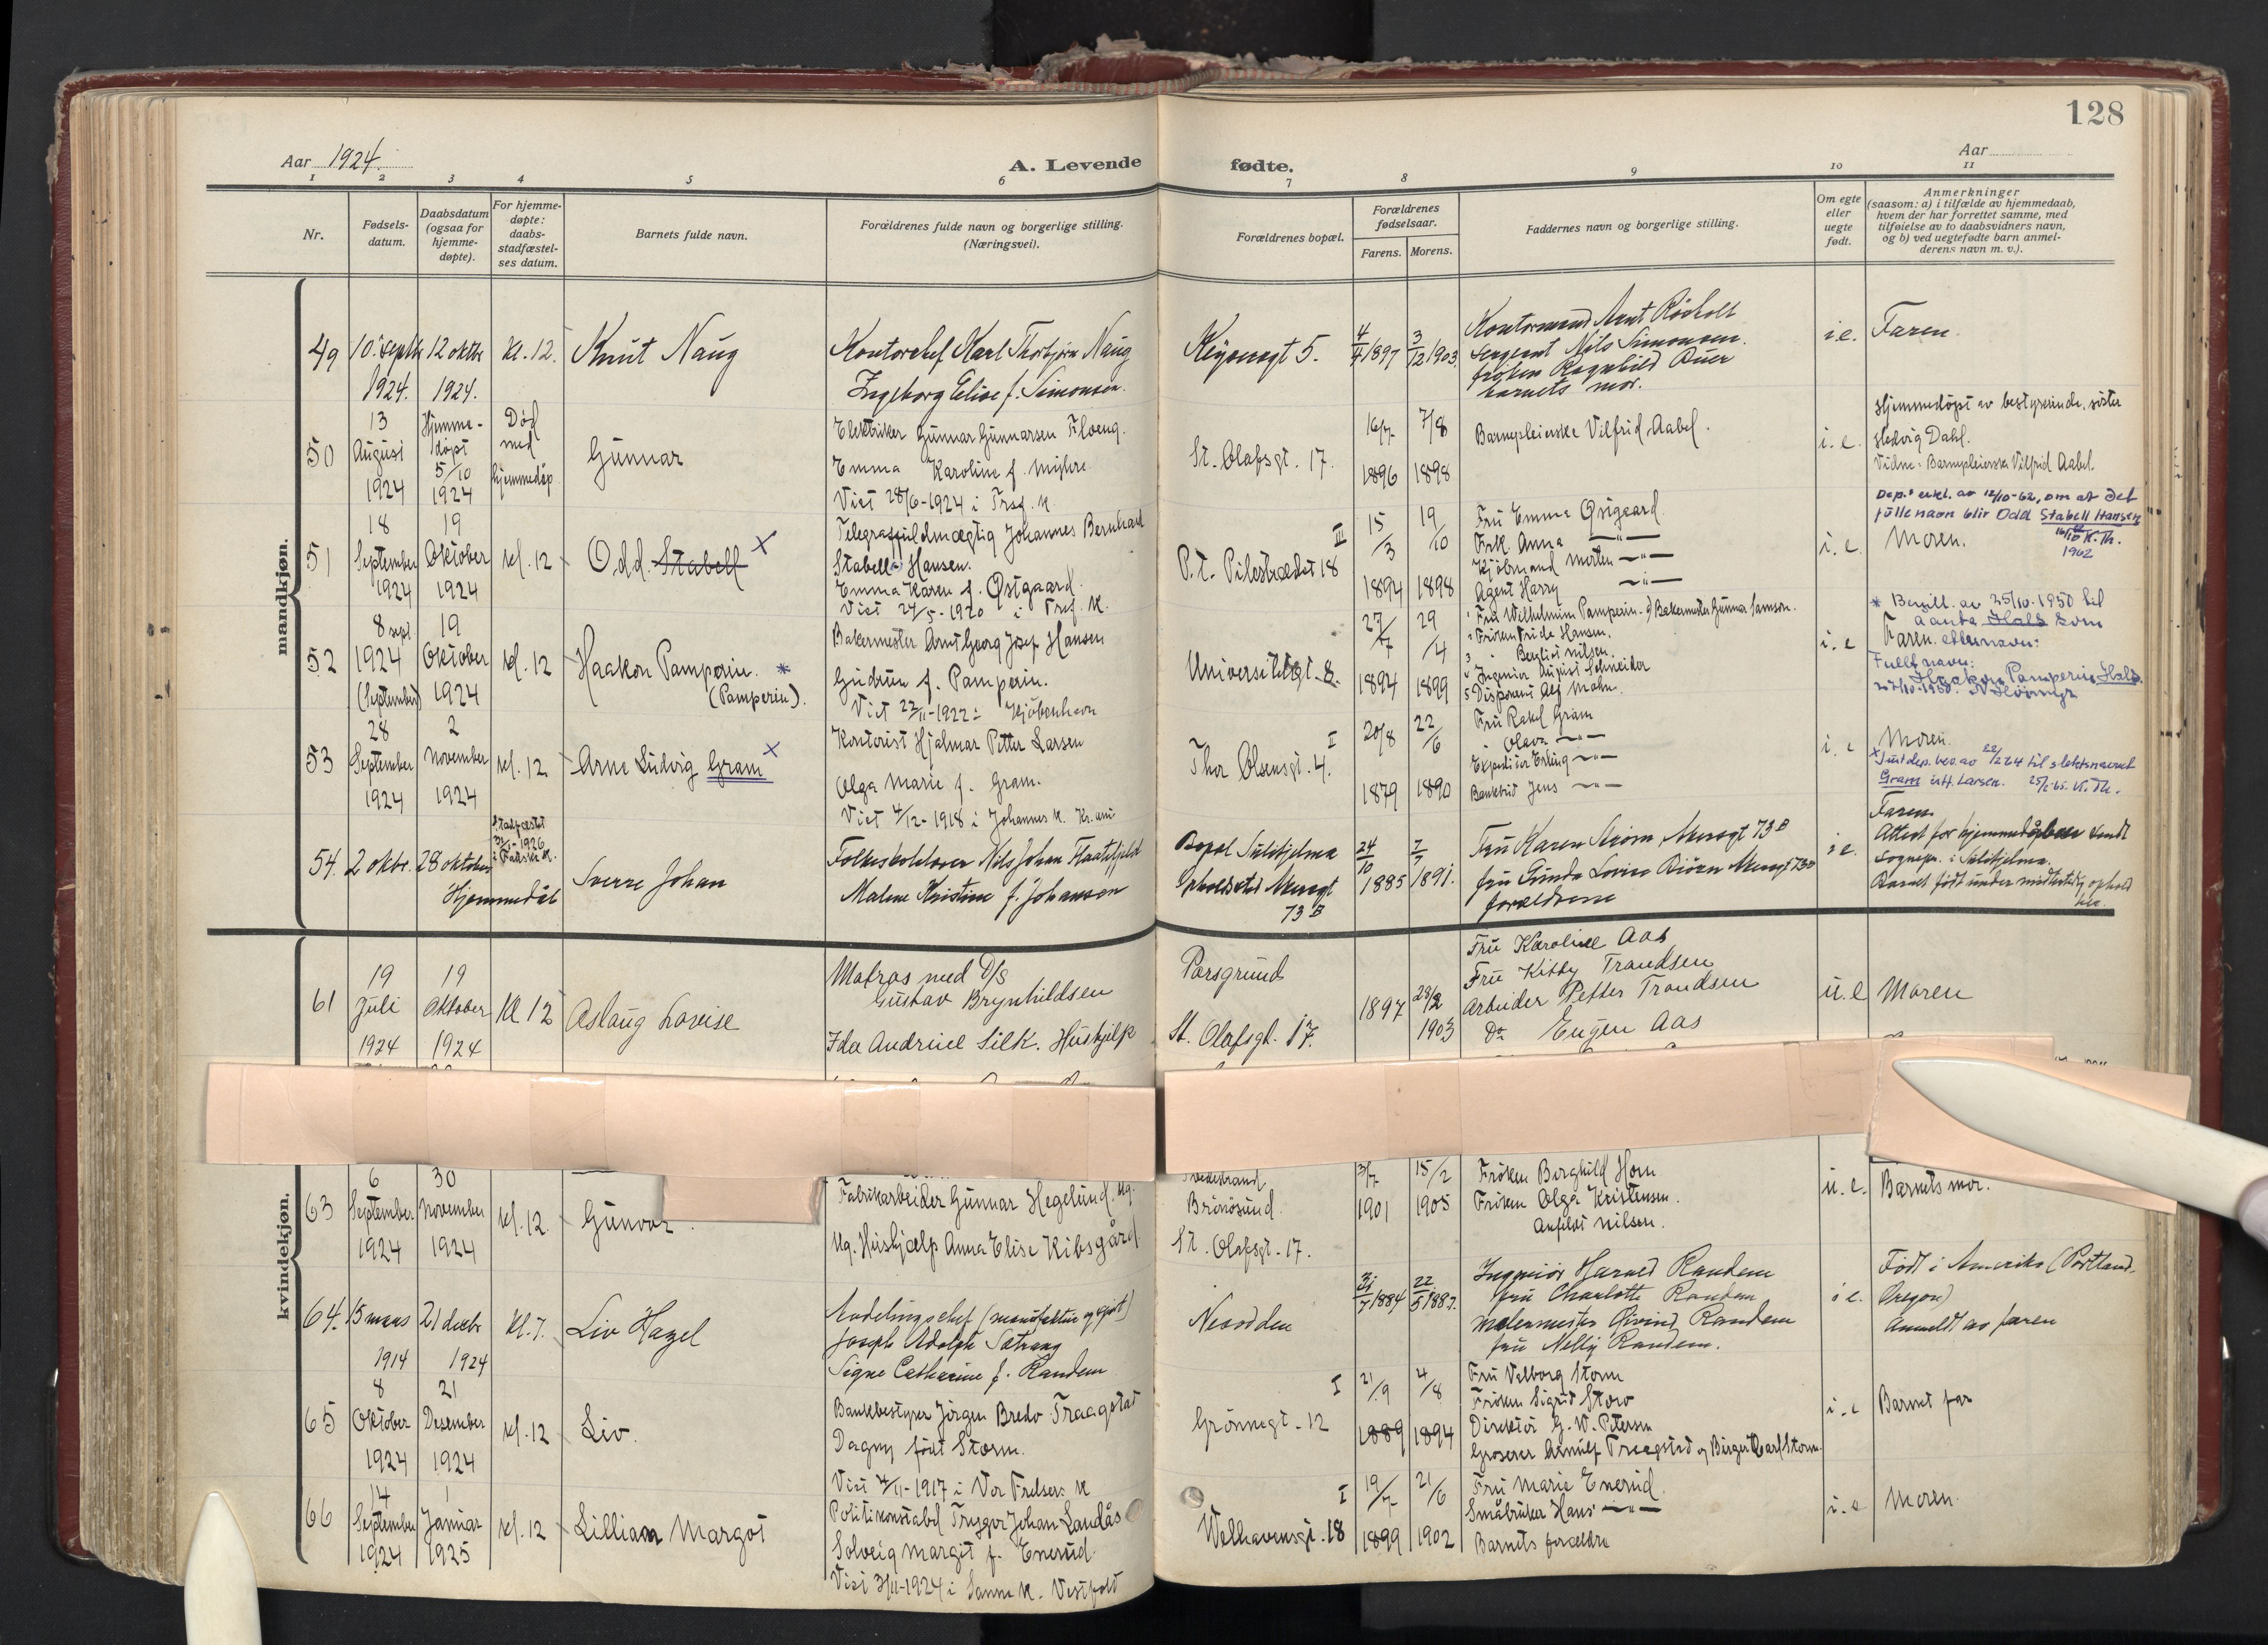 128
Aar 1924.
A. Levende fødte.
Aar
1 2 3 4 5 6 7 8 9 10 11
Nr.
Fødsels-
datum.
Daabsdatum
(ogsaa for
hjemme-
døpte).
For hjemme-
døpte:
daabs-
stadfæstel-
ses datum.
Barnets fulde navn.
Forældrenes fulde navn og borgerlige stilling.
(Næringsvei).
Forældrenes bopæl.
Forældrenes
fødselsaar.
Farens. Morens.
Faddernes navn og borgerlige stilling.
Om egte
eller
uegte
født.
Anmerkninger
(saasom: a) i tilfælde av hjemmedaab,
hvem der har forrettet samme, med
tilføielse av to daabsvidners navn,
og b) ved uegtefødte barn anmel-
derens navn m. v.).
mandkjøn.
49
10. septbr
1924.
12 oktbr
1924.
kl. 12.
Knut Naug
Kontorchef Karl Thorbjørn Naug
Ingeborg Elise f. Simonsen.
Keysersgt 5.
4/4 1897
3/12 1903
Kontormand Arnt Rösholt
Sergeant Nils Simonsen.
fröken Ragnhild Buer
barnets mor.
i e.
Faren
50
13
August
1924
Hjemme-
döpt
5/10
1924
Död
med
hjemmedåp
Gunnar
Elektriker Gunnar Gunnarsen Floeng.
Emma Karoline f. Myhre.
Viet 28/6-1924 i Tref. K.
St. Olafsgt. 17.
16/7
1896
7/8
1898
Barnepleierske Vilfrid Aabel.
i. e.
Hjemmedöpt av bestyrerinde, söster
Hedvig Dahl.
Vidne: Barnepleierske Vilfrid Aabel.
51
18
September
1924
19
Oktober
1924
kl. 12
Odd Stabell x
Telegraffuldmægtig Johannes Bernhard
Stabell Hansen.
Emma Karen f. Østgaard.
Viet 24/5-1920 i Tref. K.
III
P. t. Pilestrædet 18
15/3
1894
19/10
1898
Fru Emma Østgaard
Frk. Anna —"—
Kjöbmand Morten —"—
Agent Harry —"—
i. e.
Dep.s erkl. av 12/10-62, om at det
fulle navn blir Odd Stabell Hansen
K. Th.
1962
Moren.
52
8 sept.
1924
(September)
19
Oktober
1924
kl. 12
Haakon Pamperin. *
(Pamperin).
Bakermester Arnt Georg Josef Hansen
Gudrun f. Pamperin.
Viet 22/11-1922 i Kjöbenhavn
Universitetsgt. 8.
27/7
1894
29/4
1899
1 Fru Wilhelmine Pamperin. 6) Bakermester Gunnar Samson.
2 Fröken Frida Hansen.
3 " Bergliot Nilsen.
4 Ingeniör August Schneider
5 Disponent Alf Mohn.
i. e
* Bevill. av 25/10-1950 til
å anta Hals som
etternavn:
Faren.
Fullt navn:
Haakon Pamperin Hals.
53
28
September
1924
2
November
1924
kl. 12
Arne Ludvig Gram x
Kontorist Hjalmar Petter Larsen
Olga Marie f. Gram.
Viet 4/12-1918 i Johannes K. Kr.ania
I
Thor Olsensgt. 4.
20/8
1879
22/6
1890
Fru Rakel Gram
" Olava —"—
Expeditör Erling —"—
Bankbud Jens —"—
i. e
Moren.
x Just.dep. bev. av til slektsnavnet
Gram istf. Larsen. K. Th.
54.
2 oktbr.
28 oktober
Hjemmedåb
Stadfæstet
Sverre Johan
Folkeskolelærer Nils Johan Flaatefjeld
Malene Kristine f. Johansen
Bopæl Sulitjelma
Opholdssted Akersgt
73 B
24/10
1885
7/7
1891.
Fru Karen Akersgt 73 B
fru Gunda Lovise Akersgt 73 B
forældrene
i e.
Faren
Attest for hjemmedåben sendt
sognepr. i Sulitjelma.
Barnet född under midlertidig ophold
her.
kvindekjøn.
61
19
Juli
1924
19
Oktober
1924
Kl 12
Aslaug Lovise
Matros med D/S
Gustav Brynhildsen
Ida Andrine Silk. Hushjelp
Porsgrund
St. Olafsgt. 17.
1897
28/2
1903
Fru Karoline Aas
Fru Kitty Trandsen
Arbeider Petter Trondsen
Do Eugen Aas
u. e
Moren
63
6
September
1924
30
November
1924
kl. 12.
Gunvor.
Fabrikarbeider Gunnar Hegelund. Ug.
Ug. Hushjælp Anna Elise Kibsgård
Tvedestrand
Brönösund.
St. Olafsgt. 17.
3/7
1901
15/2
1905
Fröken Borghild Horn
Fröken Olga Kristensen.
Anfilot Nilsen.
u. e.
Barnets mor.
64.
15 mars
1914
21 decbr
1924
kl. 7.
Liv Hazel
Avdelingschef (manufaktur og gjöt)
Joseph Adolph Sætrang
Signe Catharine f. Randem
Nesodden
31/7 1884
22/5 1887.
Ingeniör Harald Randem
fru Charlotte Randem
malermester Öivind Randem
fru Nelly Randem.
i e.
Född i Amerika (Portland.
Oregon)
Anmeldt av faren
65
8
Oktober
1924
21
Desember
1924
kl. 12
Liv.
Bankbestyrer Jörgen Bredo Traagstad
Dagny född Storm.
Viet 4/11-1917 i Vor Frelsers K
I
Grönnegt. 12
21/9
1889
4/8
1894
Fru Valborg Storm
Fröken Sigrid Storm
Direktör G. W. Petersen
Grosserer Arnulf Traagstad og Birger Carl Storm.
i. e
Barnet far
66
14
September
1924
1
Januar
1925
kl. 12
Lillian Margot
Politikonstabel Trygve Johan Landås
Solveig Margit f. Enerud.
Viet 3/11-1924 i Sanne K. Vestfold
I
Welhavensgt. 18
19/7
1899
21/6
1902
Fru Marie Enerud.
Småbruker Hans —"—
Barnets forældre
i. e
Moren.